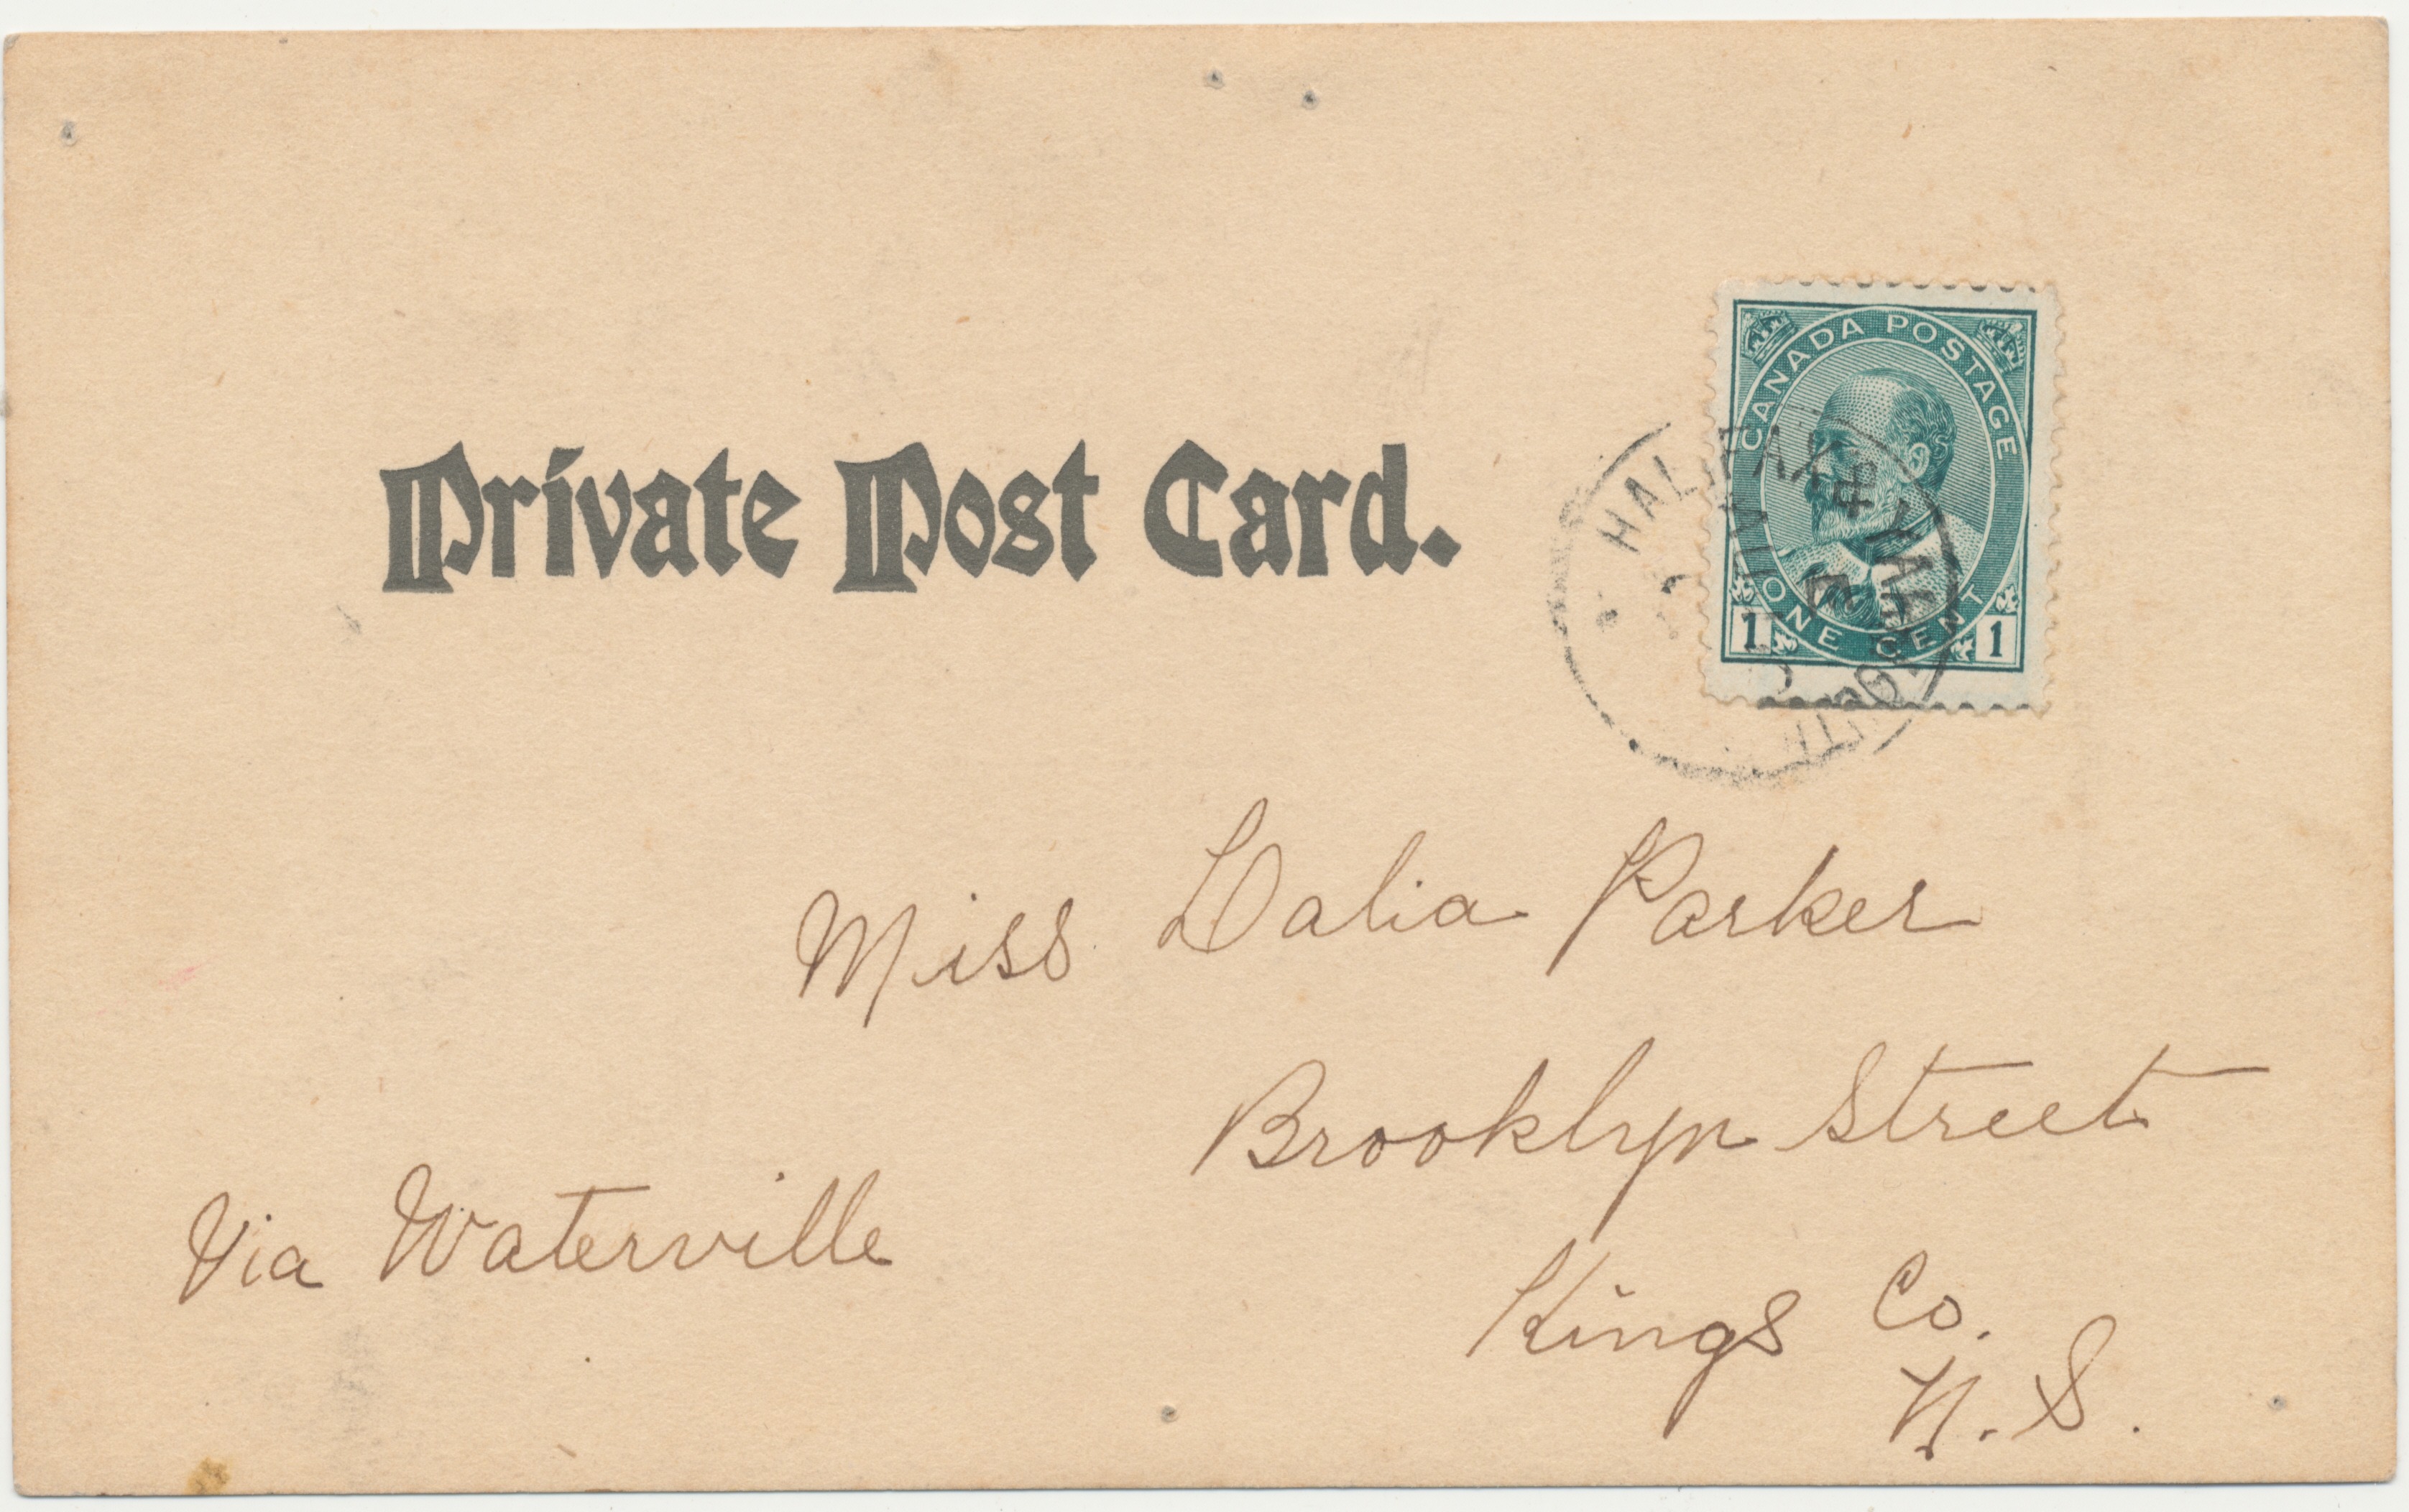 Private Post Card.
CANADA POSTAGE
ONE CENT
1 1
HALIFAX & YARMOUTH
Miss Dalia Parker
Brooklyn Street
Via Waterville
Kings Co.
N.S.